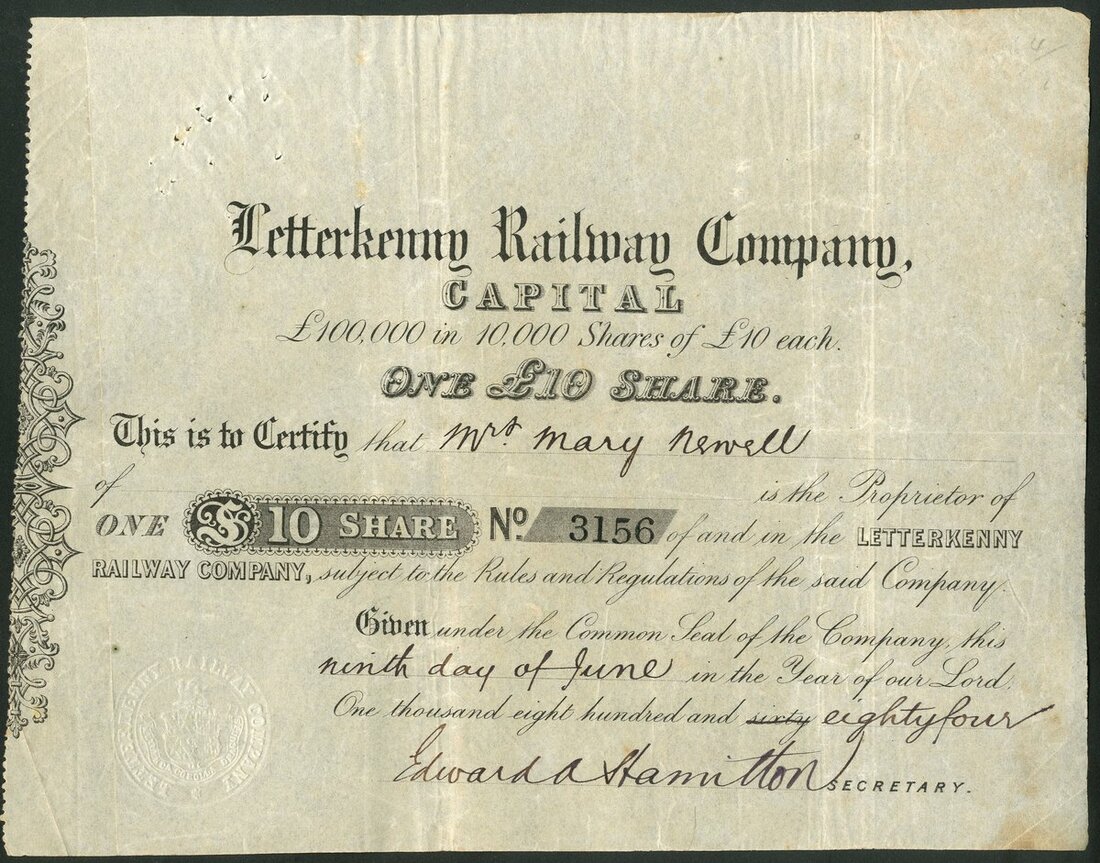 Letterkenny Railway Company,
CAPITAL
£100,000 in 10,000 Shares of £10 each.
ONE £10 SHARE.
This is to Certify that Mrs Mary Newell
of is the Proprietor of
ONE £10 SHARE No. 3156 of and in the LETTERKENNY
RAILWAY COMPANY, subject to the Rules and Regulations of the said Company.
Given under the Common Seal of the Company, this
ninth day of June in the Year of our Lord
One thousand eight hundred and sixty eightyfour
Edward A Hamilton SECRETARY.
LETTERKENNY RAILWAY COMPANY